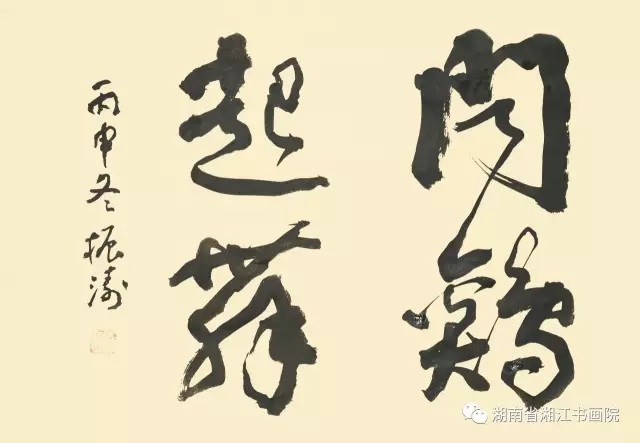 闻鸡
起舞
丙申冬振涛
湖南省湘江书画院